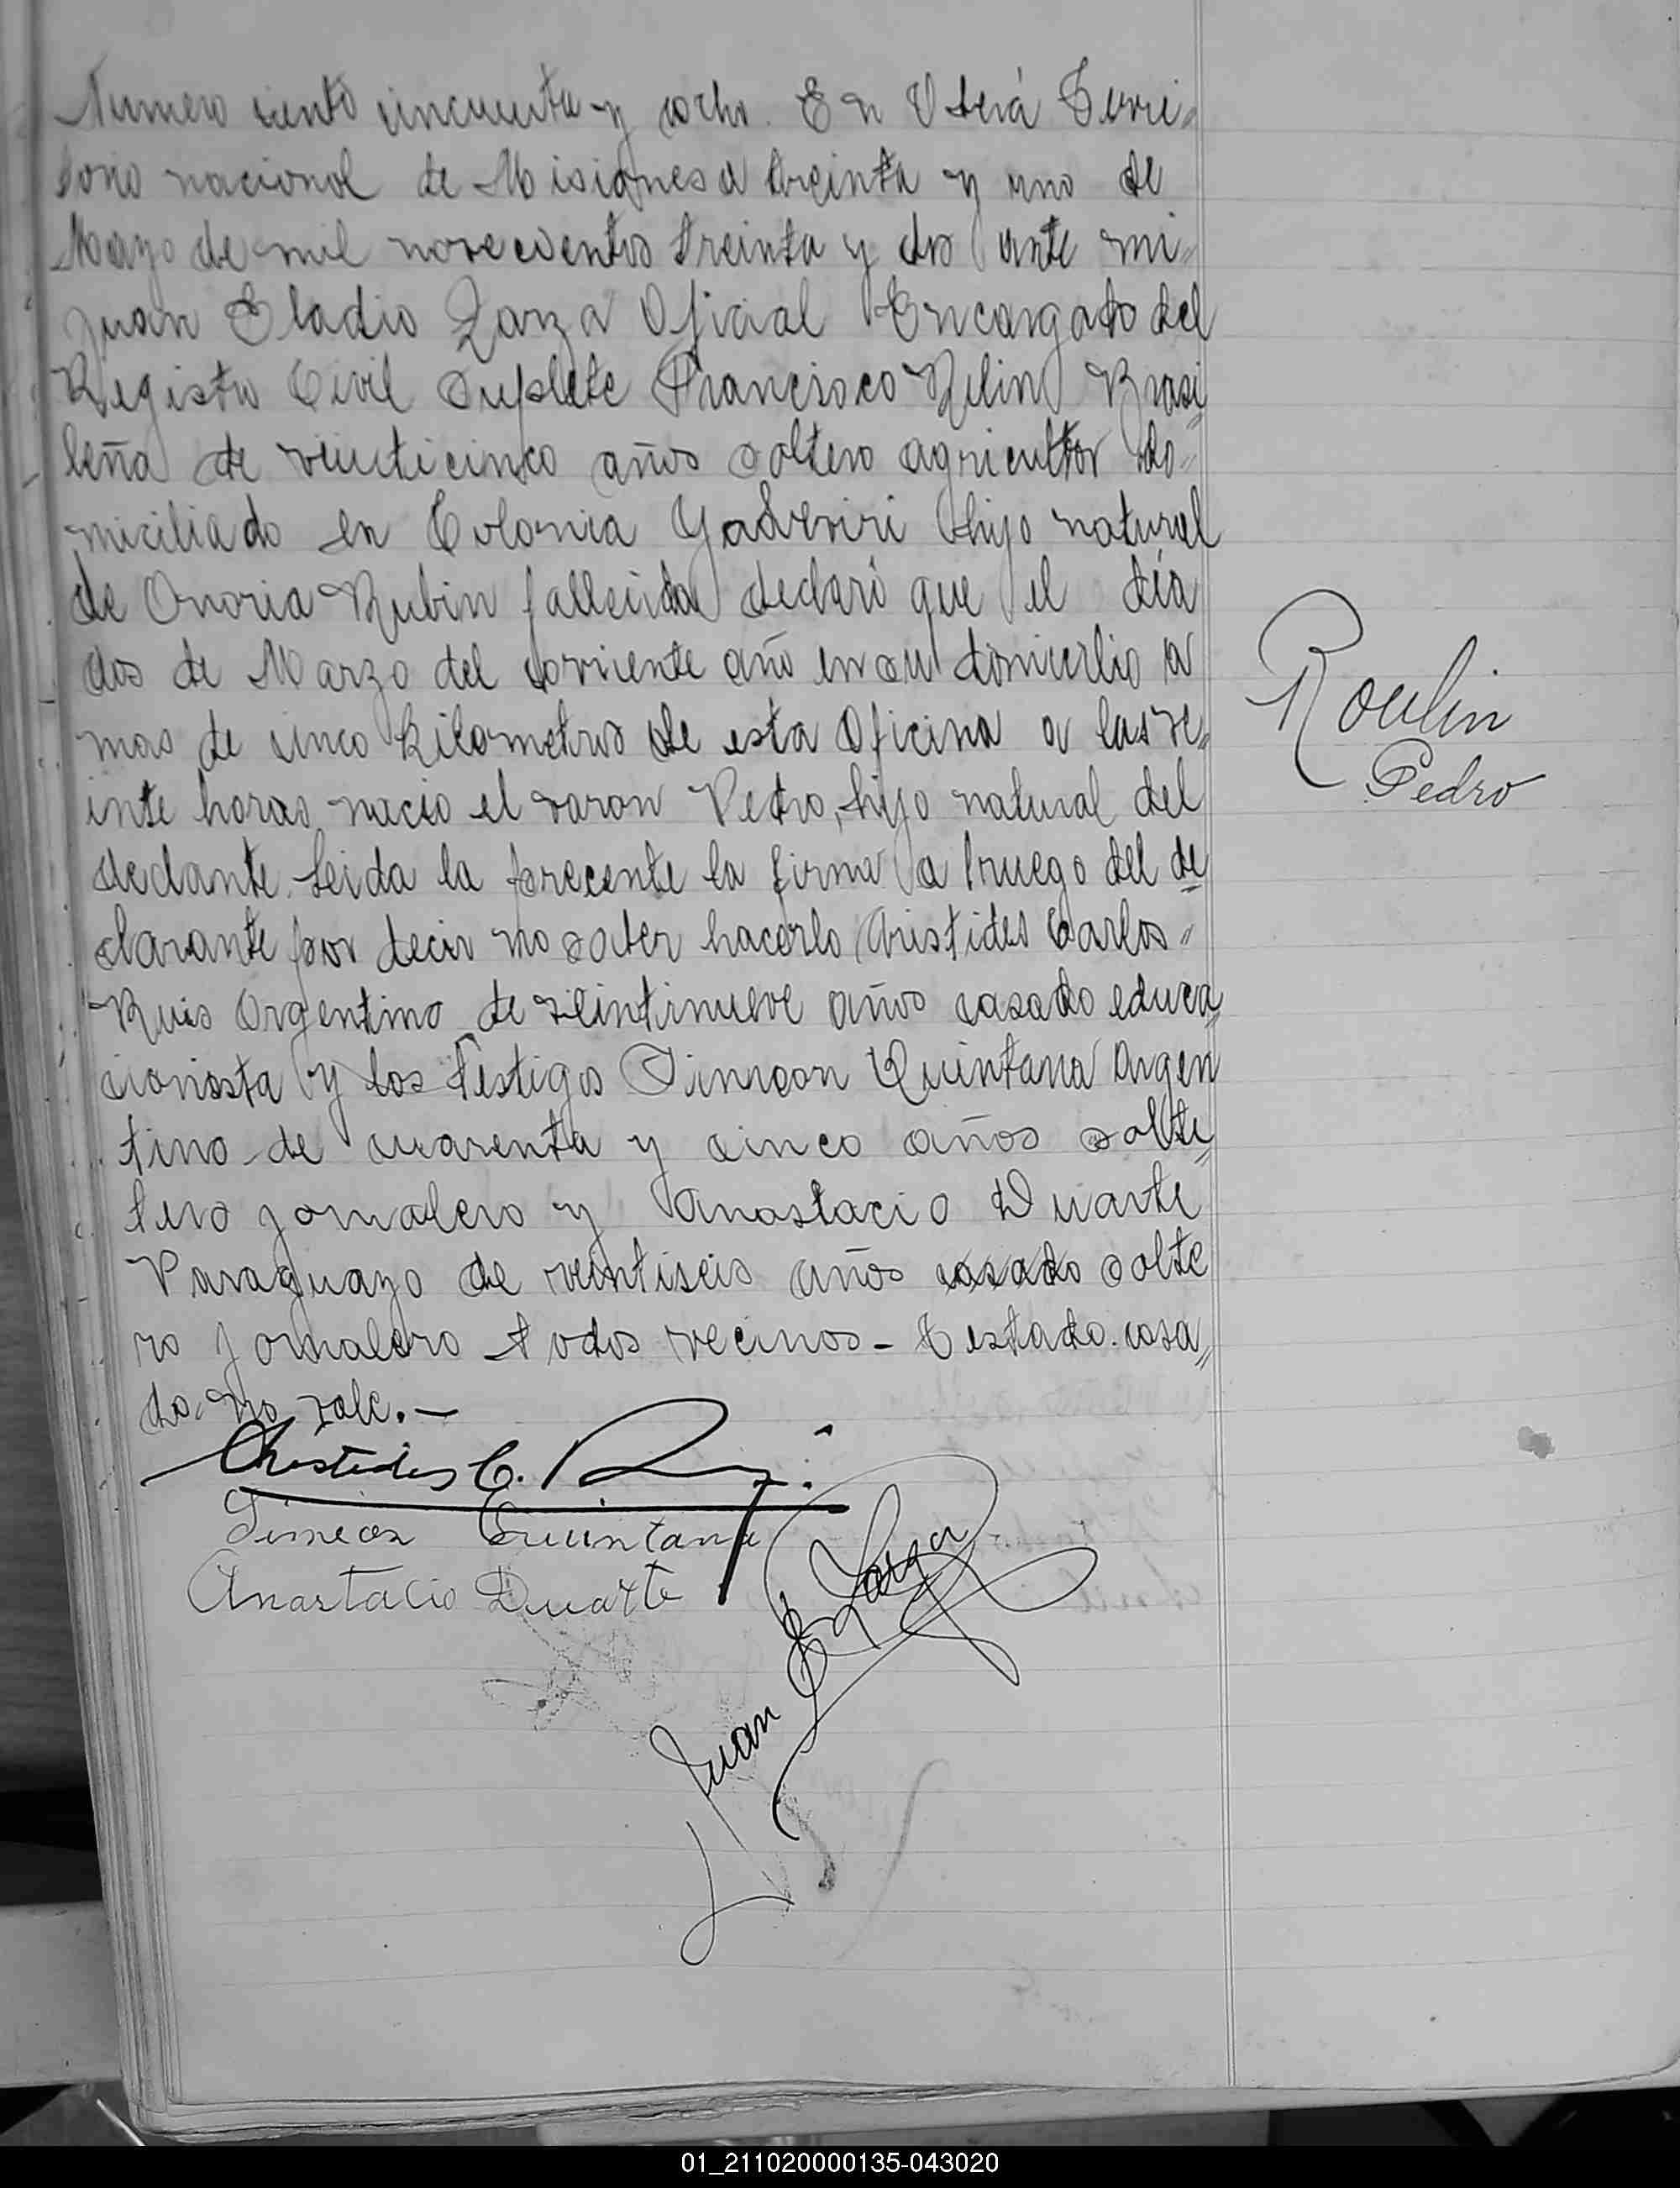 Numero ciento cincuenta y ocho. En Oberá Terri=
torio nacional de Misiones a treinta y uno de
Mayo de mil novecientos treinta y dos ante mi=
Juan Eladio Zarza Oficial Encargado del
Registro Civil Suplete Francisco Rulin Brasi=
leña de veinticinco años soltero agricultor do=
miciliado en Colonia Yabeviri hijo natural
de Onoria Rubin fallecida declaró que el día
dos de Marzo del corriente año en su domicilio a
mas de cinco kilometros de esta Oficina a las ve=
inte horas nacio el varon Pedro, hijo natural del
declante. Leida la precente la firma a ruego del de
clarante por decir no saber hacerlo Aristides Carlos=
Ruis Argentino de veintinueve años casado educa
cionista y los Testigos Simeon Quintana Argen
tino de cuarenta y cinco años solte=
tero jornalero y Anastacio Duarte
Paraguayo de veintiseis años casado solte
ro jornalero todos vecinos - Testado. casa=
do. no vale.-
Aristides C. Ruiz.
Simeon Quintana
Anastacio Duarte
Juan E. Zarza
Roulin
Pedro
01_211020000135-043020